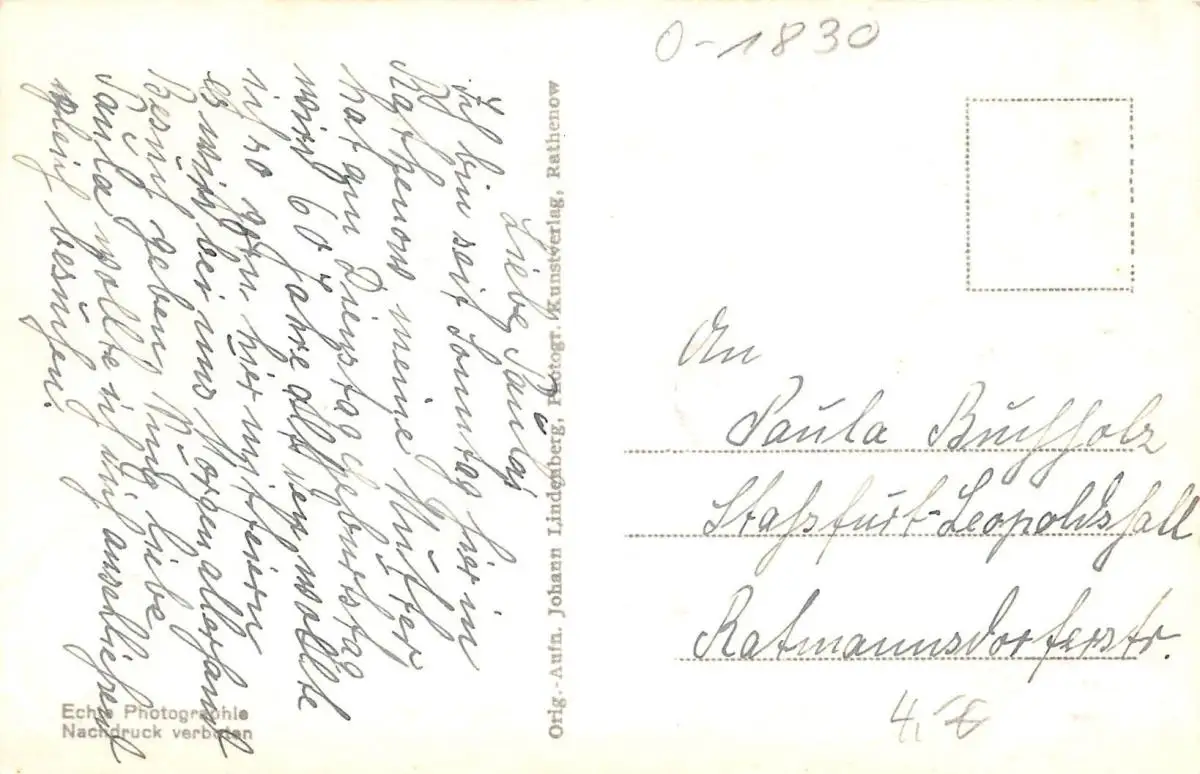 O-1830
Liebe Paula
Ich bin seit Sonntag hier in
Rathenow meine Mutter
hat zum Dienstag Geburtstag
wird 60 Jahre alt nun wollte
ich so gern hier mitfeiern
es wird bei uns Morgen allerhand
Besuch geben. Nun liebe
Paula wollte ich dich anschließend
gleich besuchen.
Orig.-Aufn. Johann Lindenberg, Photogr. Kunstverlag, Rathenow
Echte Photographie
Nachdruck verboten
An
Paula Buchholz
Staßfurt-Leopoldshall
Ratmannsdorferstr.
4,-